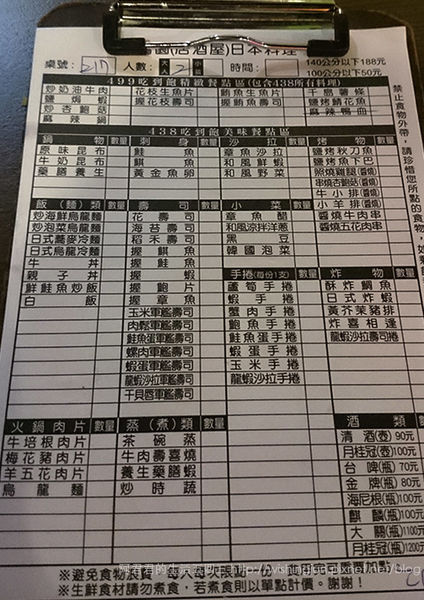 (居酒屋)日本料理
140公分以下188元
桌號: 人數: 大人 2 小孩 時間:
100公分以下50元
499吃到飽精緻餐點區(包含438所有料理)
炒奶油牛肉 花枝生魚片 鮪魚生魚片 千島薯條
鹽焗蝦 握花枝壽司 握鮪魚壽司 鹽烤鯖花魚
炒杏鮑菇 麻辣鴨血
麻辣鍋
438吃到飽美味餐點區
鍋物 數量 刺身 數量 沙拉 數量 燒烤 數量
原味昆布 鮭魚 章魚沙拉 鹽烤秋刀魚
牛奶昆布 鯕魚 和風鮮蝦 鹽烤魚下巴
藥膳養生 黃金魚卵 和風野菜 照燒雞腿(醬燒)
串燒杏鮑菇(醬燒)
牛小排(醬燒)
飯(麵)類 數量 壽司 數量 小菜 數量 羊小排(醬燒)
炒海鮮烏龍麵 花壽司 章魚醋 醬燒牛肉串
炒泡菜烏龍麵 海苔壽司 和風涼拌洋蔥 醬燒五花肉串
日式蕎麥冷麵 稻禾壽司 黑豆
日式烏龍冷麵 握鯕魚 韓國泡菜
牛丼 握鮭魚
親子丼 握蝦 手捲(每份1支) 數量 炸物 數量
鮮鮭魚炒飯 握鮑片 蘆筍手捲 酥炸鯛魚
白飯 握章魚 蝦手捲 日式炸蝦
玉米軍艦壽司 蟹肉手捲 黃芥茉豬排
肉鬆軍艦壽司 鮑魚手捲 炸喜相逢
鮭魚蛋軍艦壽司 鮭魚蛋手捲 龍蝦沙拉壽司捲
螺肉軍艦壽司 蝦蛋手捲
蝦蛋軍艦壽司 玉米手捲
龍蝦沙拉軍艦壽司 龍蝦沙拉手捲
干貝唇軍艦壽司
火鍋肉片 數量 蒸(煮)類 數量 酒類 數量
牛培根肉片 茶碗蒸 清酒(壺)90元
梅花豬肉片 牛肉壽喜燒 月桂冠(壺)100元
羊五花肉片 養生藥膳蝦 台啤(瓶)70元
烏龍麵 炒時蔬 金牌(瓶)80元
海尼根(瓶)100元
麒麟(瓶)100元
大關(瓶)1100元
月桂冠(瓶)1200元
※避免食物浪費
※生鮮食材請勿煮食，若煮食則以單點計價。謝謝！
禁止食物外帶，請珍惜您所點的食物